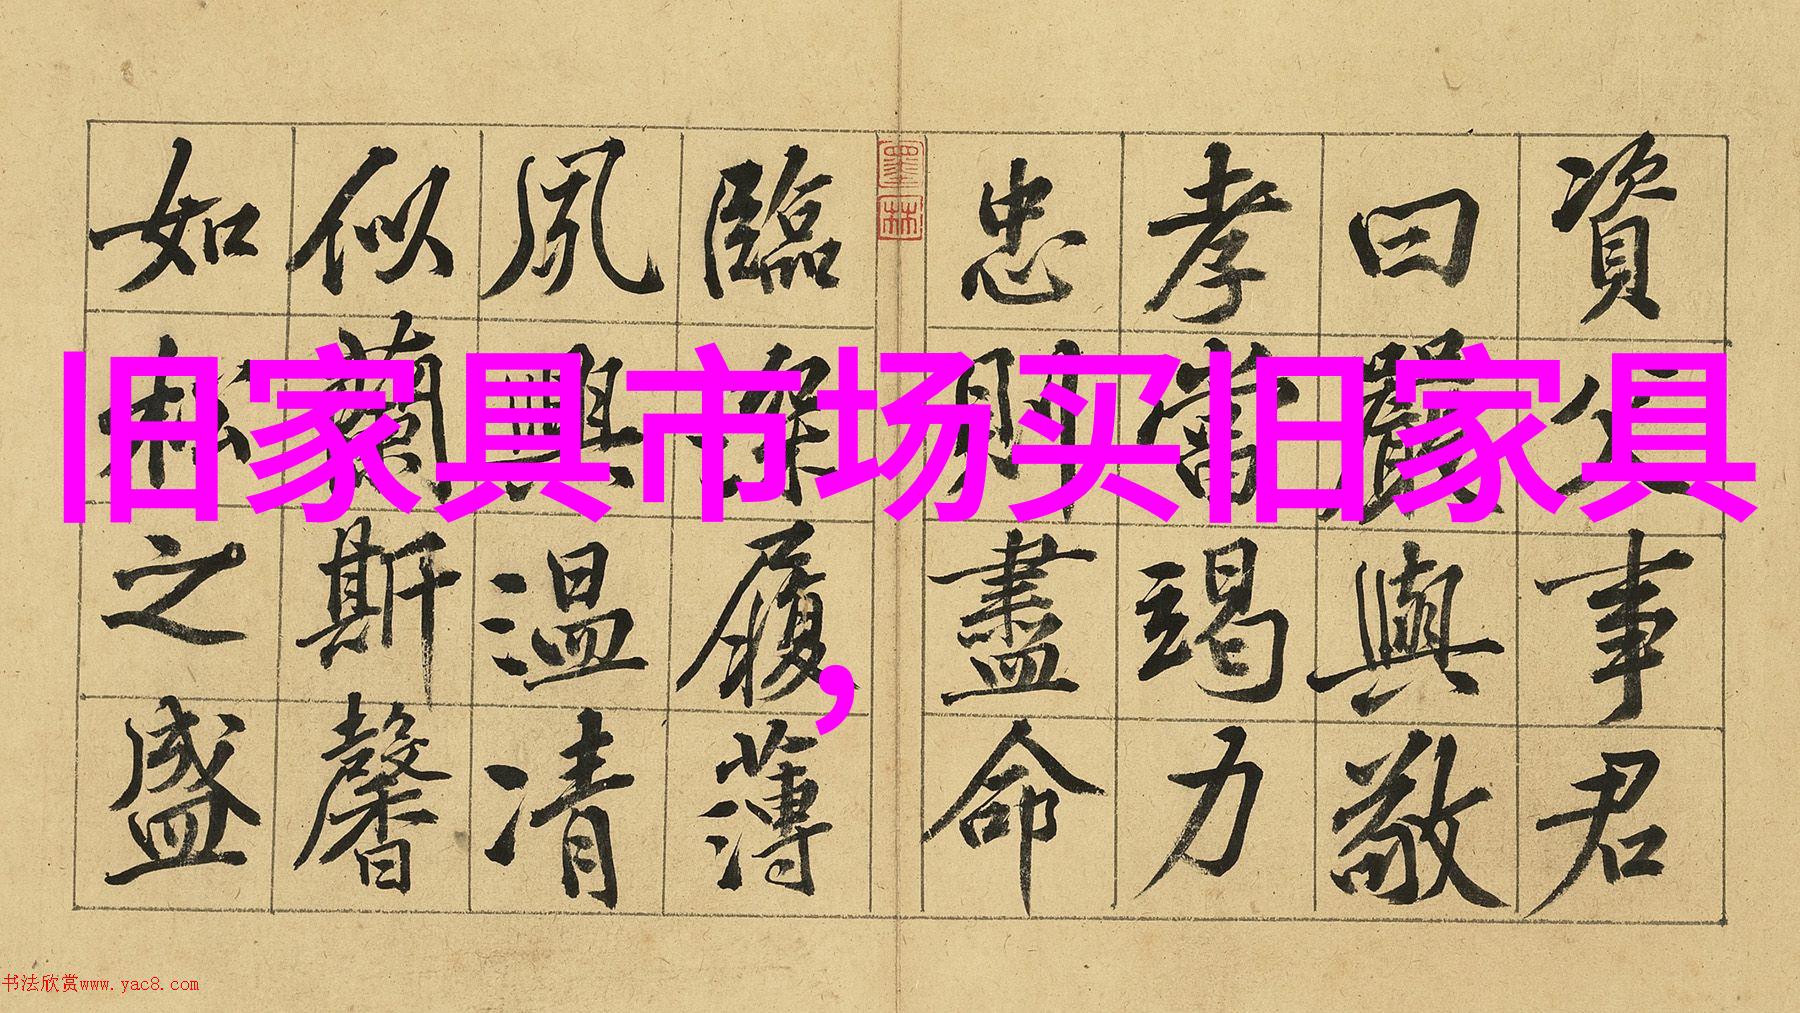 資父事君
曰嚴與敬
孝當竭力
忠則盡命
墨林
臨深履薄
夙興温凊
似蘭斯馨
如松之盛
旧家具市场买旧家具
，
书法欣赏www.yac8.com